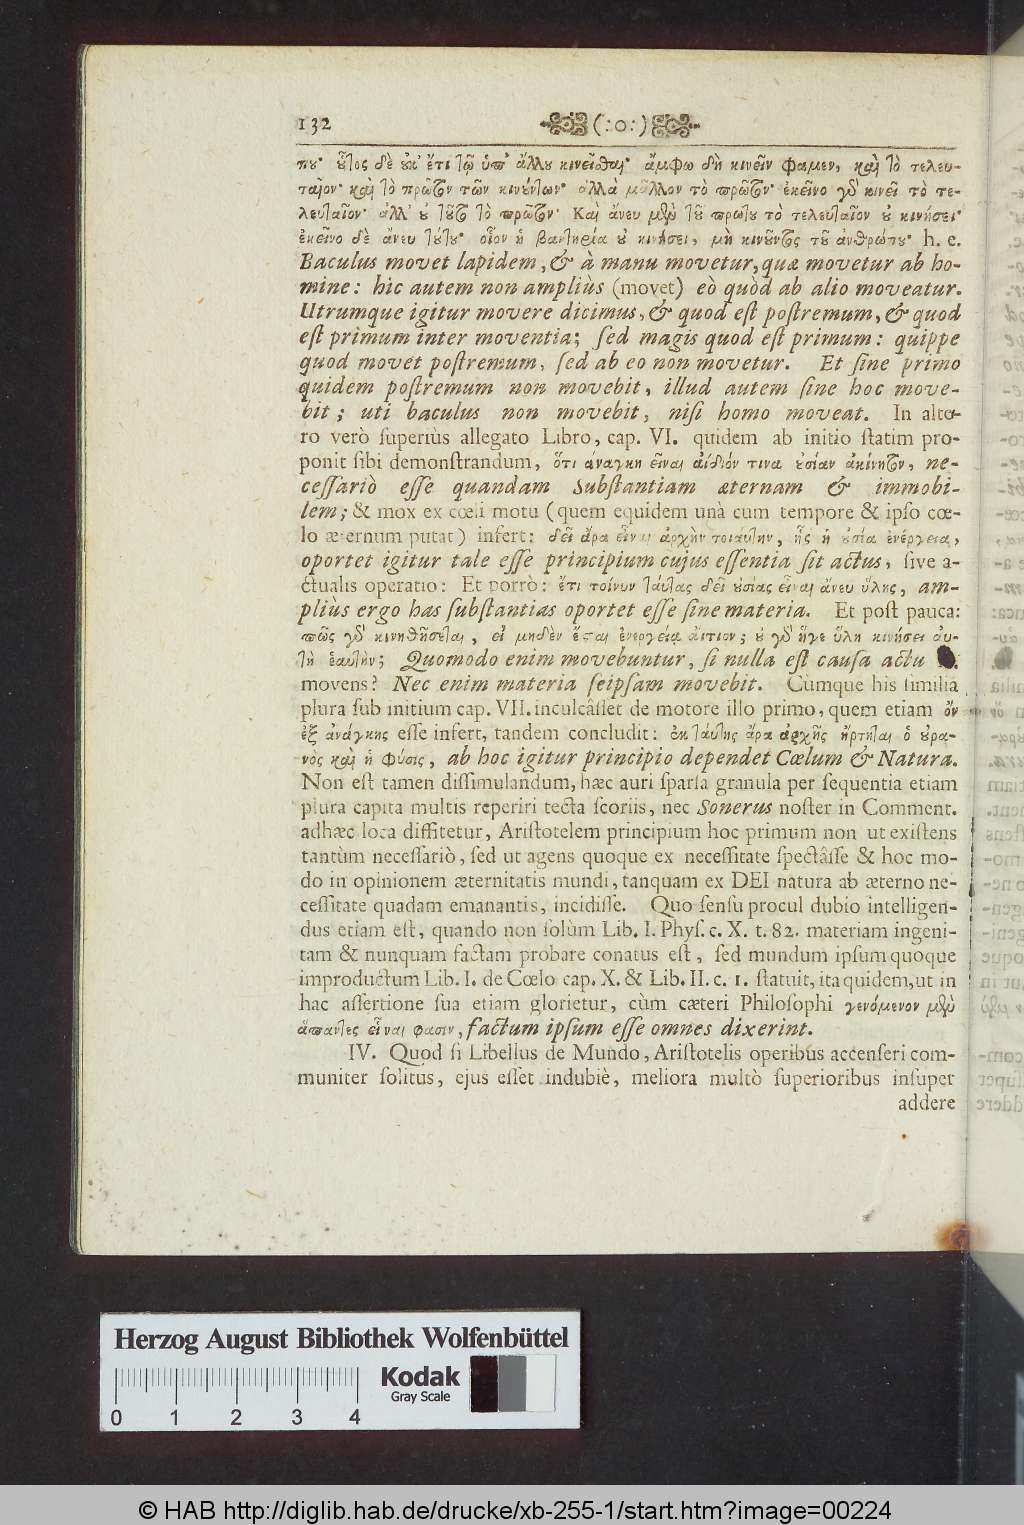 132 (:o:)
πȣ· ȣ̓τος δὲ ȣ̓κ' ἔτι τῷ ὑπ' ἄλλȣ κινεῖσθαι· ἄμφω δὴ κινεῖν φαμεν, καὶ τὸ τελευ-
ταῖον· καὶ τὸ πρῶτον τῶν κινȣ́ντων· ἀλλὰ μᾶλλον τὸ πρῶτον· ἐκεῖνο γὸ κινεῖ τὸ τε-
λευταῖον· ἀλλ' ȣ̓ τȣ͂το τὸ πρῶτον· Καὶ ἄνευ μὲν τȣ͂ πρώτȣ τὸ τελευταῖον ȣ̓ κινήσει·
ἐκεῖνο δὲ ἄνευ τȣ́τȣ· οἷον ἡ βακτηρία ȣ̓ κινήσει, μὴ κινȣ͂ντος τȣ͂ ἀνθρώπȣ· h. e.
Baculus movet lapidem, & à manu movetur, quæ movetur ab ho-
mine: hic autem non ampliùs (movet) eò quòd ab alio moveatur.
Utrumque igitur movere dicimus, & quod eſt poſtremum, & quod
eſt primum inter moventia; ſed magis quod eſt primum: quippe
quod movet poſtremum, ſed ab eo non movetur. Et ſine primo
quidem poſtremum non movebit, illud autem ſine hoc move-
bit; uti baculus non movebit, niſi homo moveat. In alte-
ro verò ſuperiùs allegato Libro, cap. VI. quidem ab initio ſtatim pro-
ponit ſibi demonſtrandum, ὅτι ἀνάγκη εἶναι ἀΐδιόν τινα ȣ̓σίαν ἀκίνητον, ne-
ceſſariò eſſe quandam Subſtantiam æternam & immobi-
lem; & mox ex cœli motu (quem equidem unà cum tempore & ipſo cœ-
lo æternum putat) infert: δεῖ ἄρα εἶναι ἀρχὴν τοιαύτην, ἧς ἡ ȣ̓σία ἐνέργεια,
oportet igitur tale eſſe principium cujus eſſentia ſit actus, ſive a-
ctualis operatio: Et porrò: ἔτι τοίνυν ταύτας δεῖ ȣ̓σίας εἶναι ἄνευ ὕλης, am-
pliùs ergo has ſubſtantias oportet eſſe ſine materia. Et poſt pauca:
πῶς γὸ κινηθήσεται, εἰ μηδὲν ἔσται ἐνεργεία αἴτιον; ȣ̓ γὸ ἥγε ὕλη κινήσει αὐ-
τὴ ἑαυτήν; Quomodo enim movebuntur, ſi nulla eſt cauſa actu
movens? Nec enim materia ſeipſam movebit. Cùmque his ſimilia
plura ſub initium cap. VII. inculcâſſet de motore illo primo, quem etiam ὄν
ἐξ ἀνάγκης eſſe infert, tandem concludit: ἐκ ταύτης ἄρα ἀρχῆς ἤρτηται ὁ ȣ̓ρα-
νὸς καὶ ἡ φύσις, ab hoc igitur principio dependet Cœlum & Natura.
Non eſt tamen diſſimulandum, hæc auri ſparſa granula per ſequentia etiam
plura capita multis reperiri tecta ſcoriis, nec Sonerus noſter in Comment.
adhæc loca diffitetur, Ariſtotelem principium hoc primum non ut exiſtens
tantùm neceſſariò, ſed ut agens quoque ex neceſſitate ſpectâſſe & hoc mo-
do in opinionem æternitatis mundi, tanquam ex DEI natura ab æterno ne-
ceſſitate quadam emanantis, incidiſſe. Quo ſenſu procul dubio intelligen-
dus etiam eſt, quando non ſolùm Lib. I. Phyſ. c. X. t. 82. materiam ingeni-
tam & nunquam factam probare conatus eſt, ſed mundum ipſum quoque
improductum Lib. I. de Cœlo cap. X. & Lib. II. c. 1. ſtatuit, ita quidem, ut in
hac aſſertione ſua etiam glorietur, cùm cæteri Philoſophi γενόμενον μὲν
ἅπαντες εἶναι φασιν, factum ipſum eſſe omnes dixerint.
IV. Quod ſi Libellus de Mundo, Ariſtotelis operibus accenſeri com-
muniter ſolitus, ejus eſſet indubiè, meliora multò ſuperioribus inſuper
addere
Herzog August Bibliothek Wolfenbüttel
Kodak
Gray Scale
0 1 2 3 4
© HAB http://diglib.hab.de/drucke/xb-255-1/start.htm?image=00224